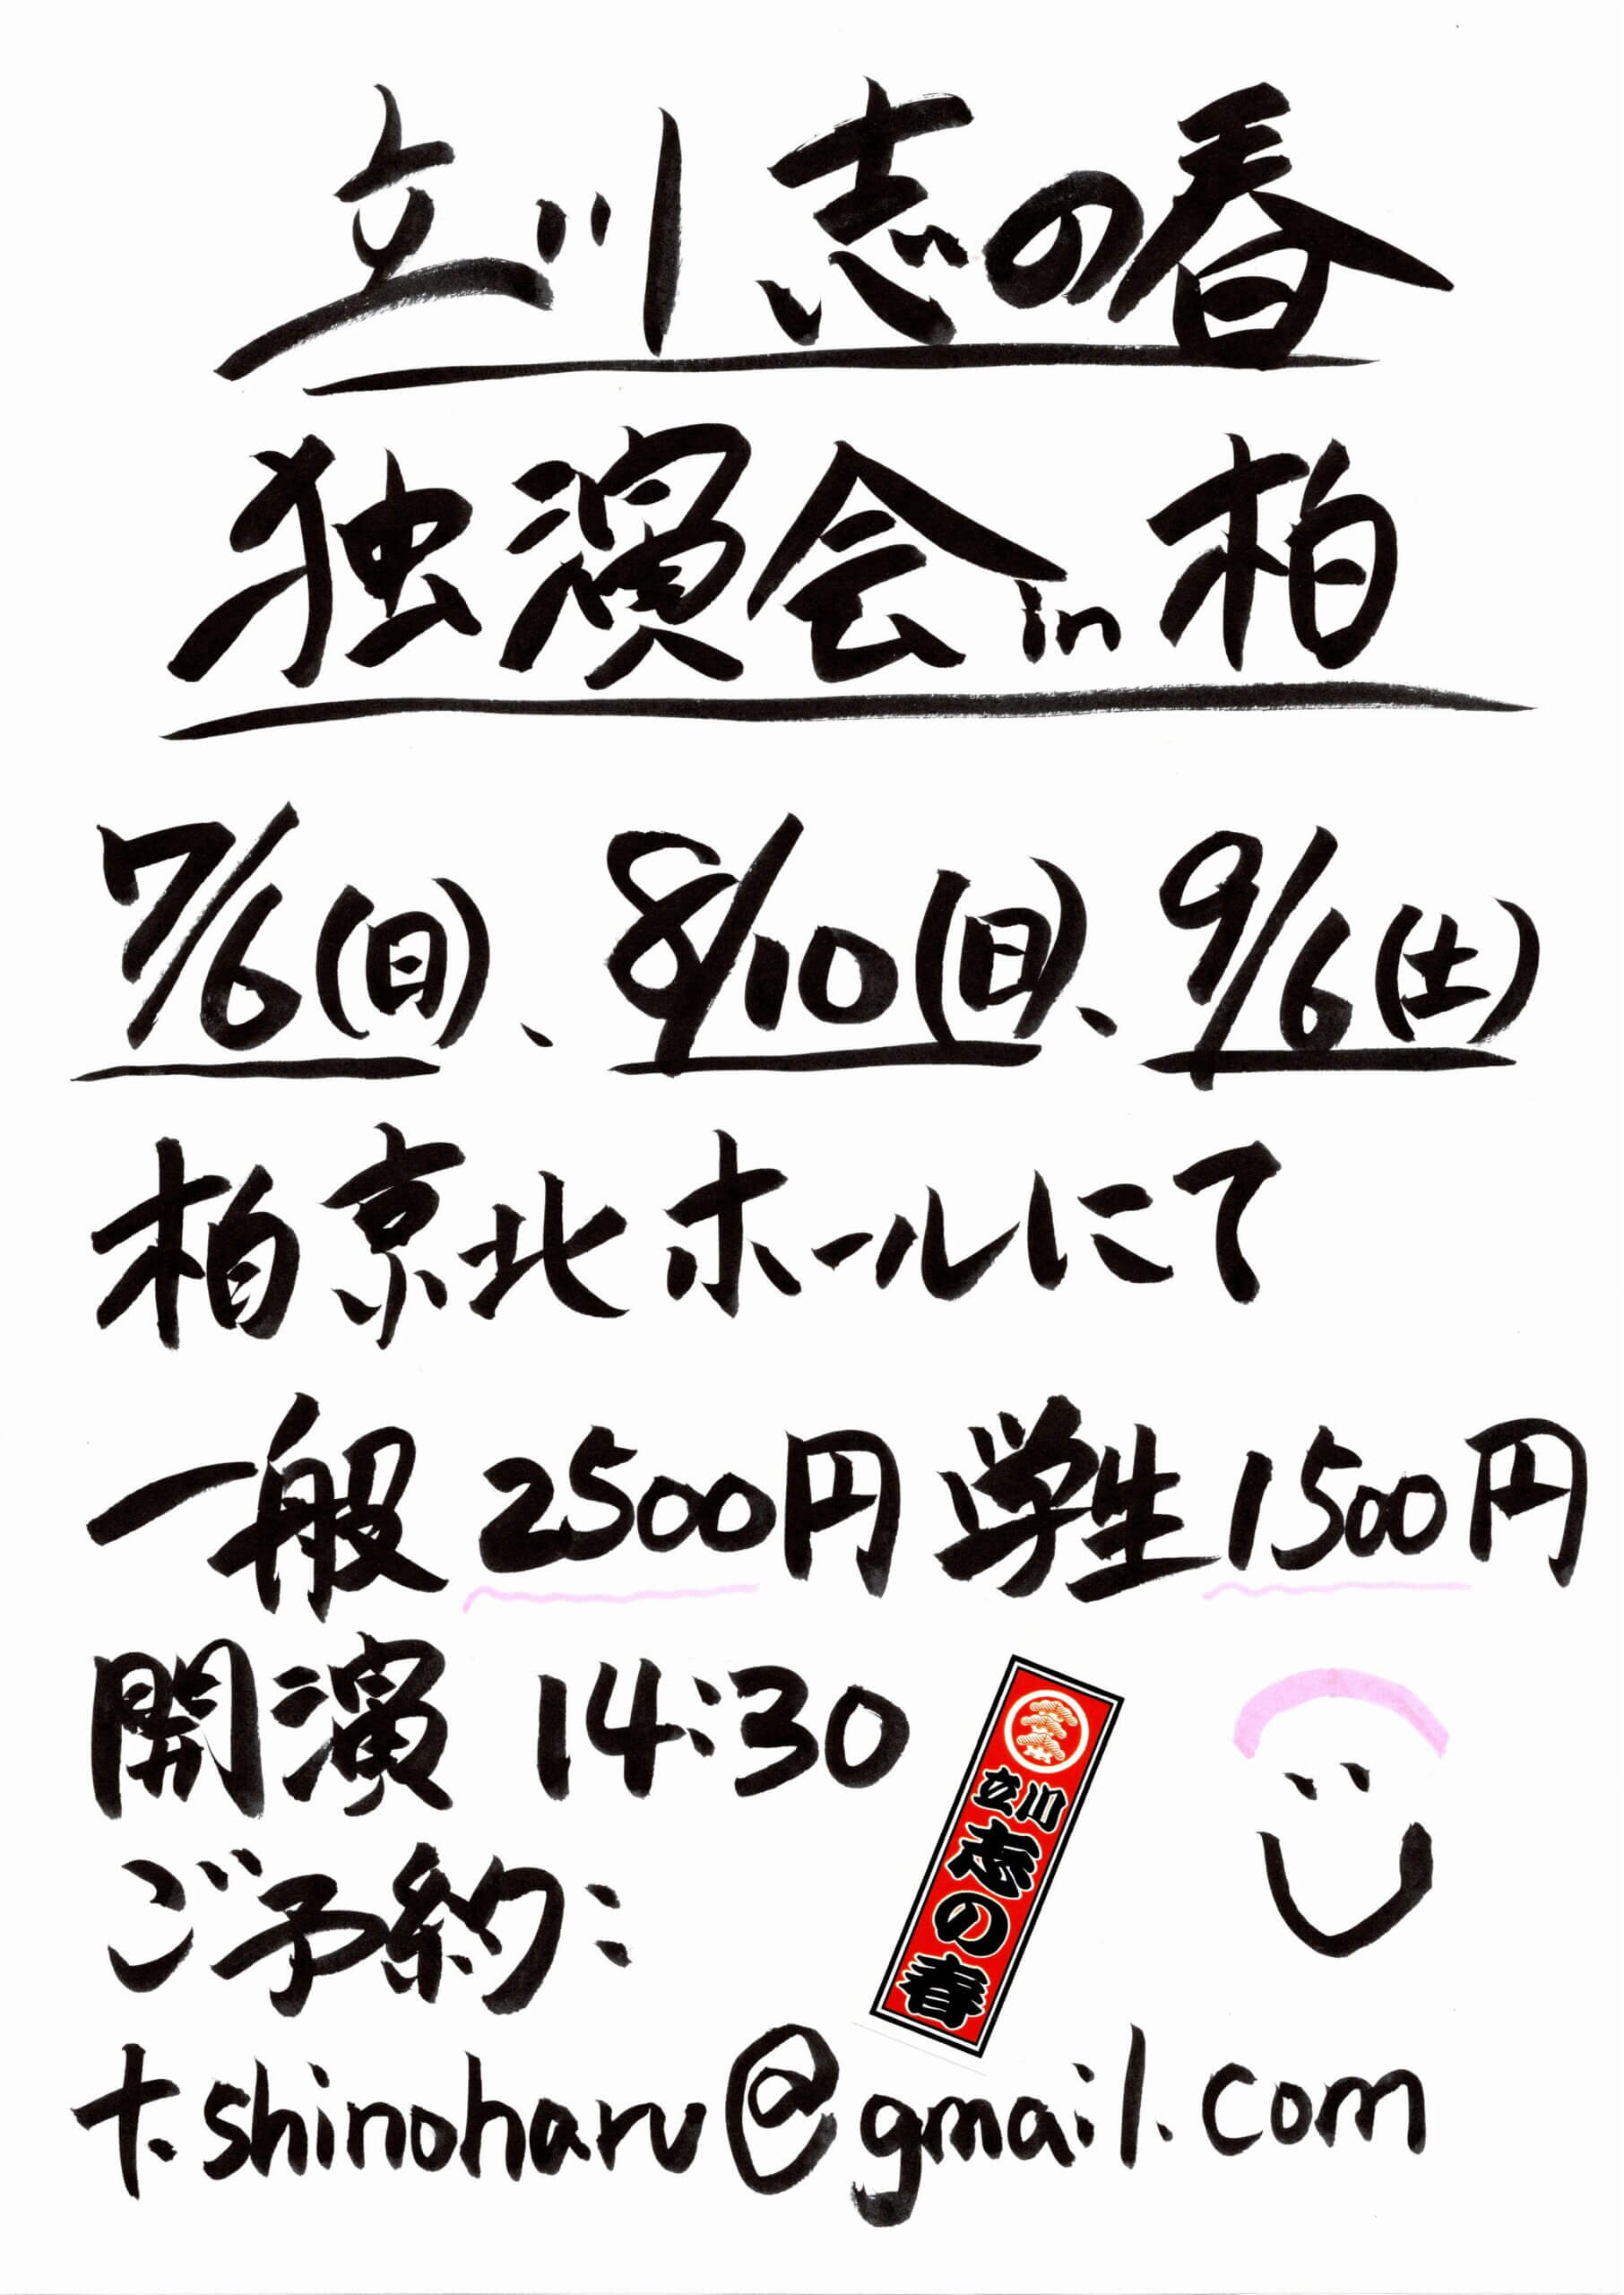 立川志の春
独演会in柏
7/6(日)、8/10(日)、9/6(土)
柏京北ホールにて
一般 2500円 学生 1500円
開演 14:30
立川
志の春
ご予約:
t.shinoharu@gmail.com